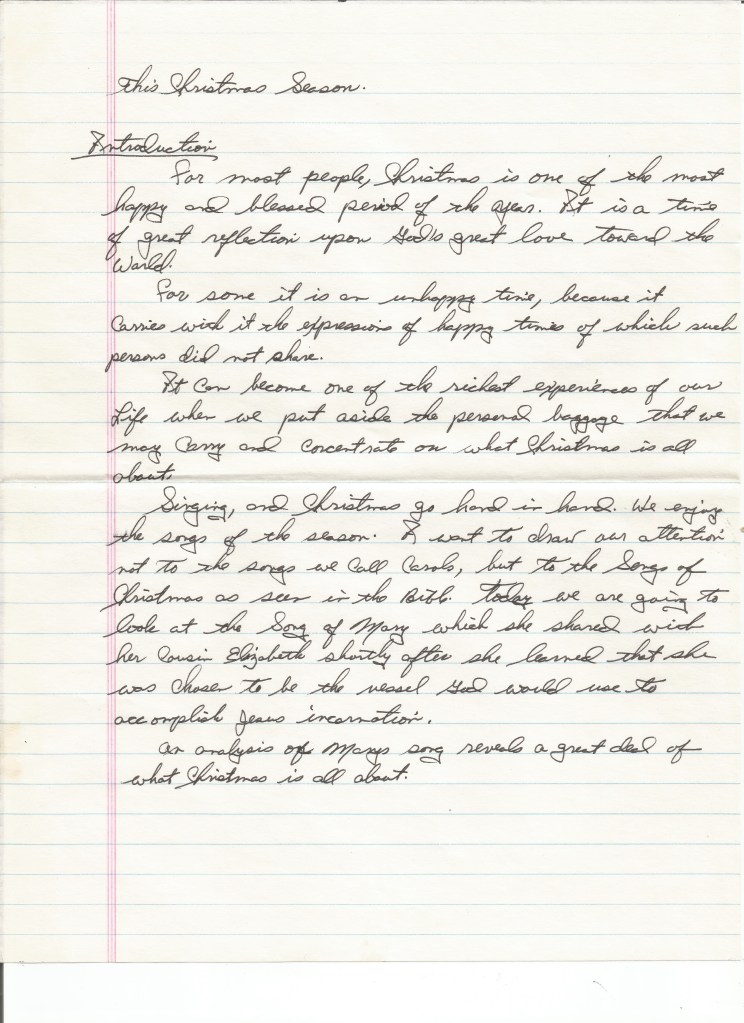 This Christmas Season.
Introduction
For most people, Christmas is one of the most
happy and blessed period of the year. It is a time
of great reflection upon God's great love toward the
World.
For some it is an unhappy time, because it
Carries with it the expressions of happy times of which such
persons did not share.
It Can become one of the richest experiences of our
Life when we put aside the personal baggage that we
may Carry and Concentrate on what Christmas is all
about.
Singing, and Christmas go hand in hand. We enjoy
the songs of the season. I want to draw our attention
not to the songs we Call Carols, but to the Songs of
Christmas as seen in the Bible. Today we are going to
look at the Song of Mary which she shared with
her Cousin Elizabeth shortly after she learned that she
was Chosen to be the vessel God would use to
accomplish Jesus incarnation.
An analysis of Marys song reveals a great deal of
what Christmas is all about.